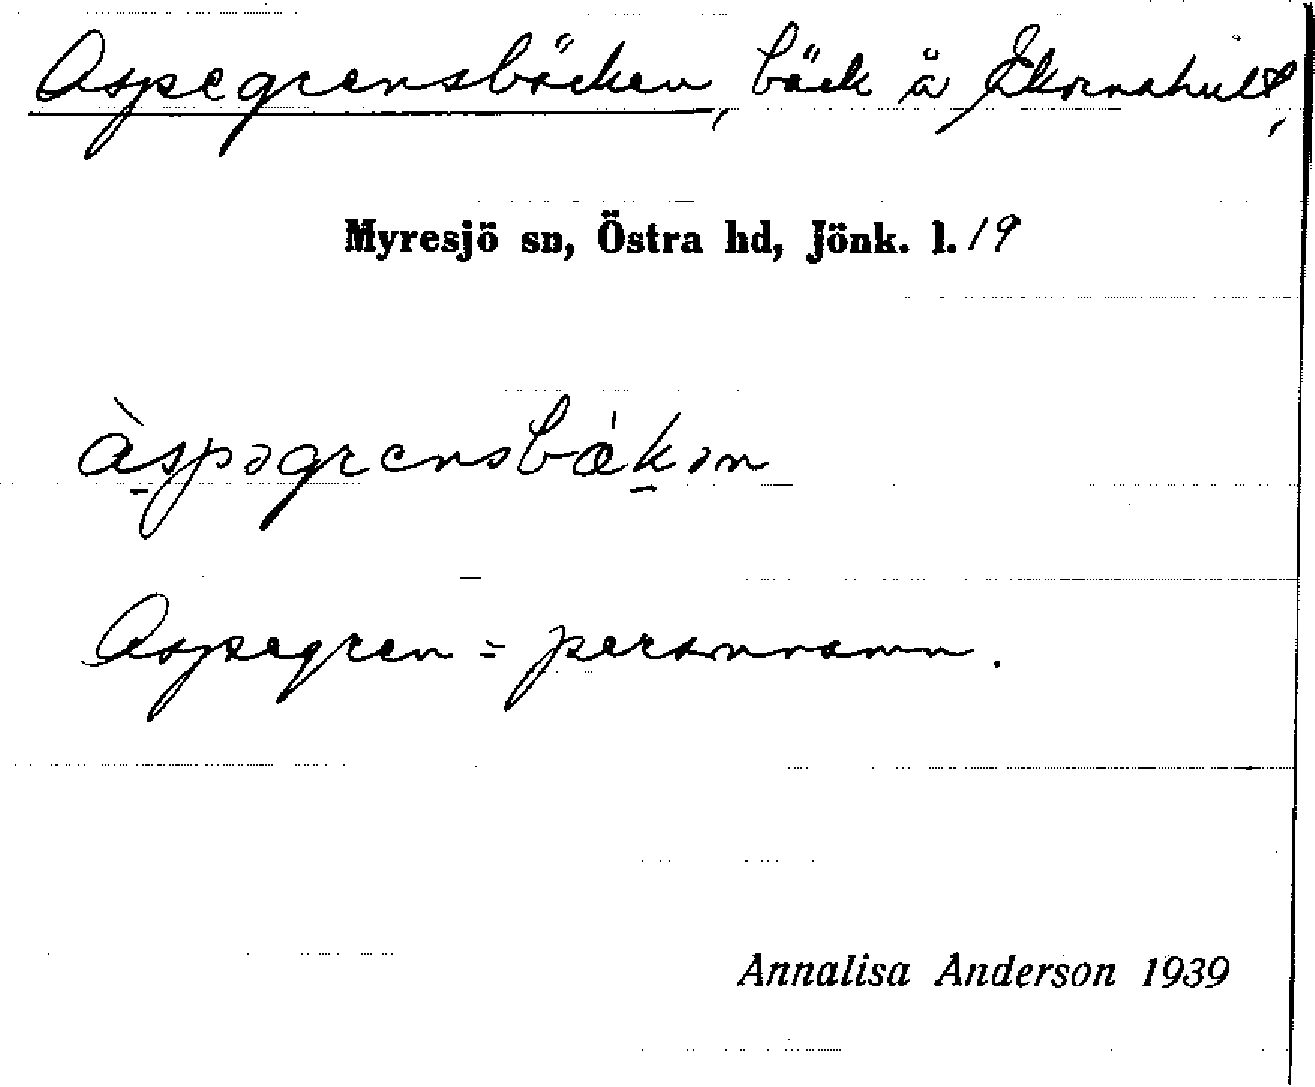 Aspegrensbäcken, bäck å Ekornahult,
Myresjö sn, Östra hd, Jönk. l. 19
àspəgrensbǽkən
Aspegren = personnamn.
Annalisa Anderson 1939